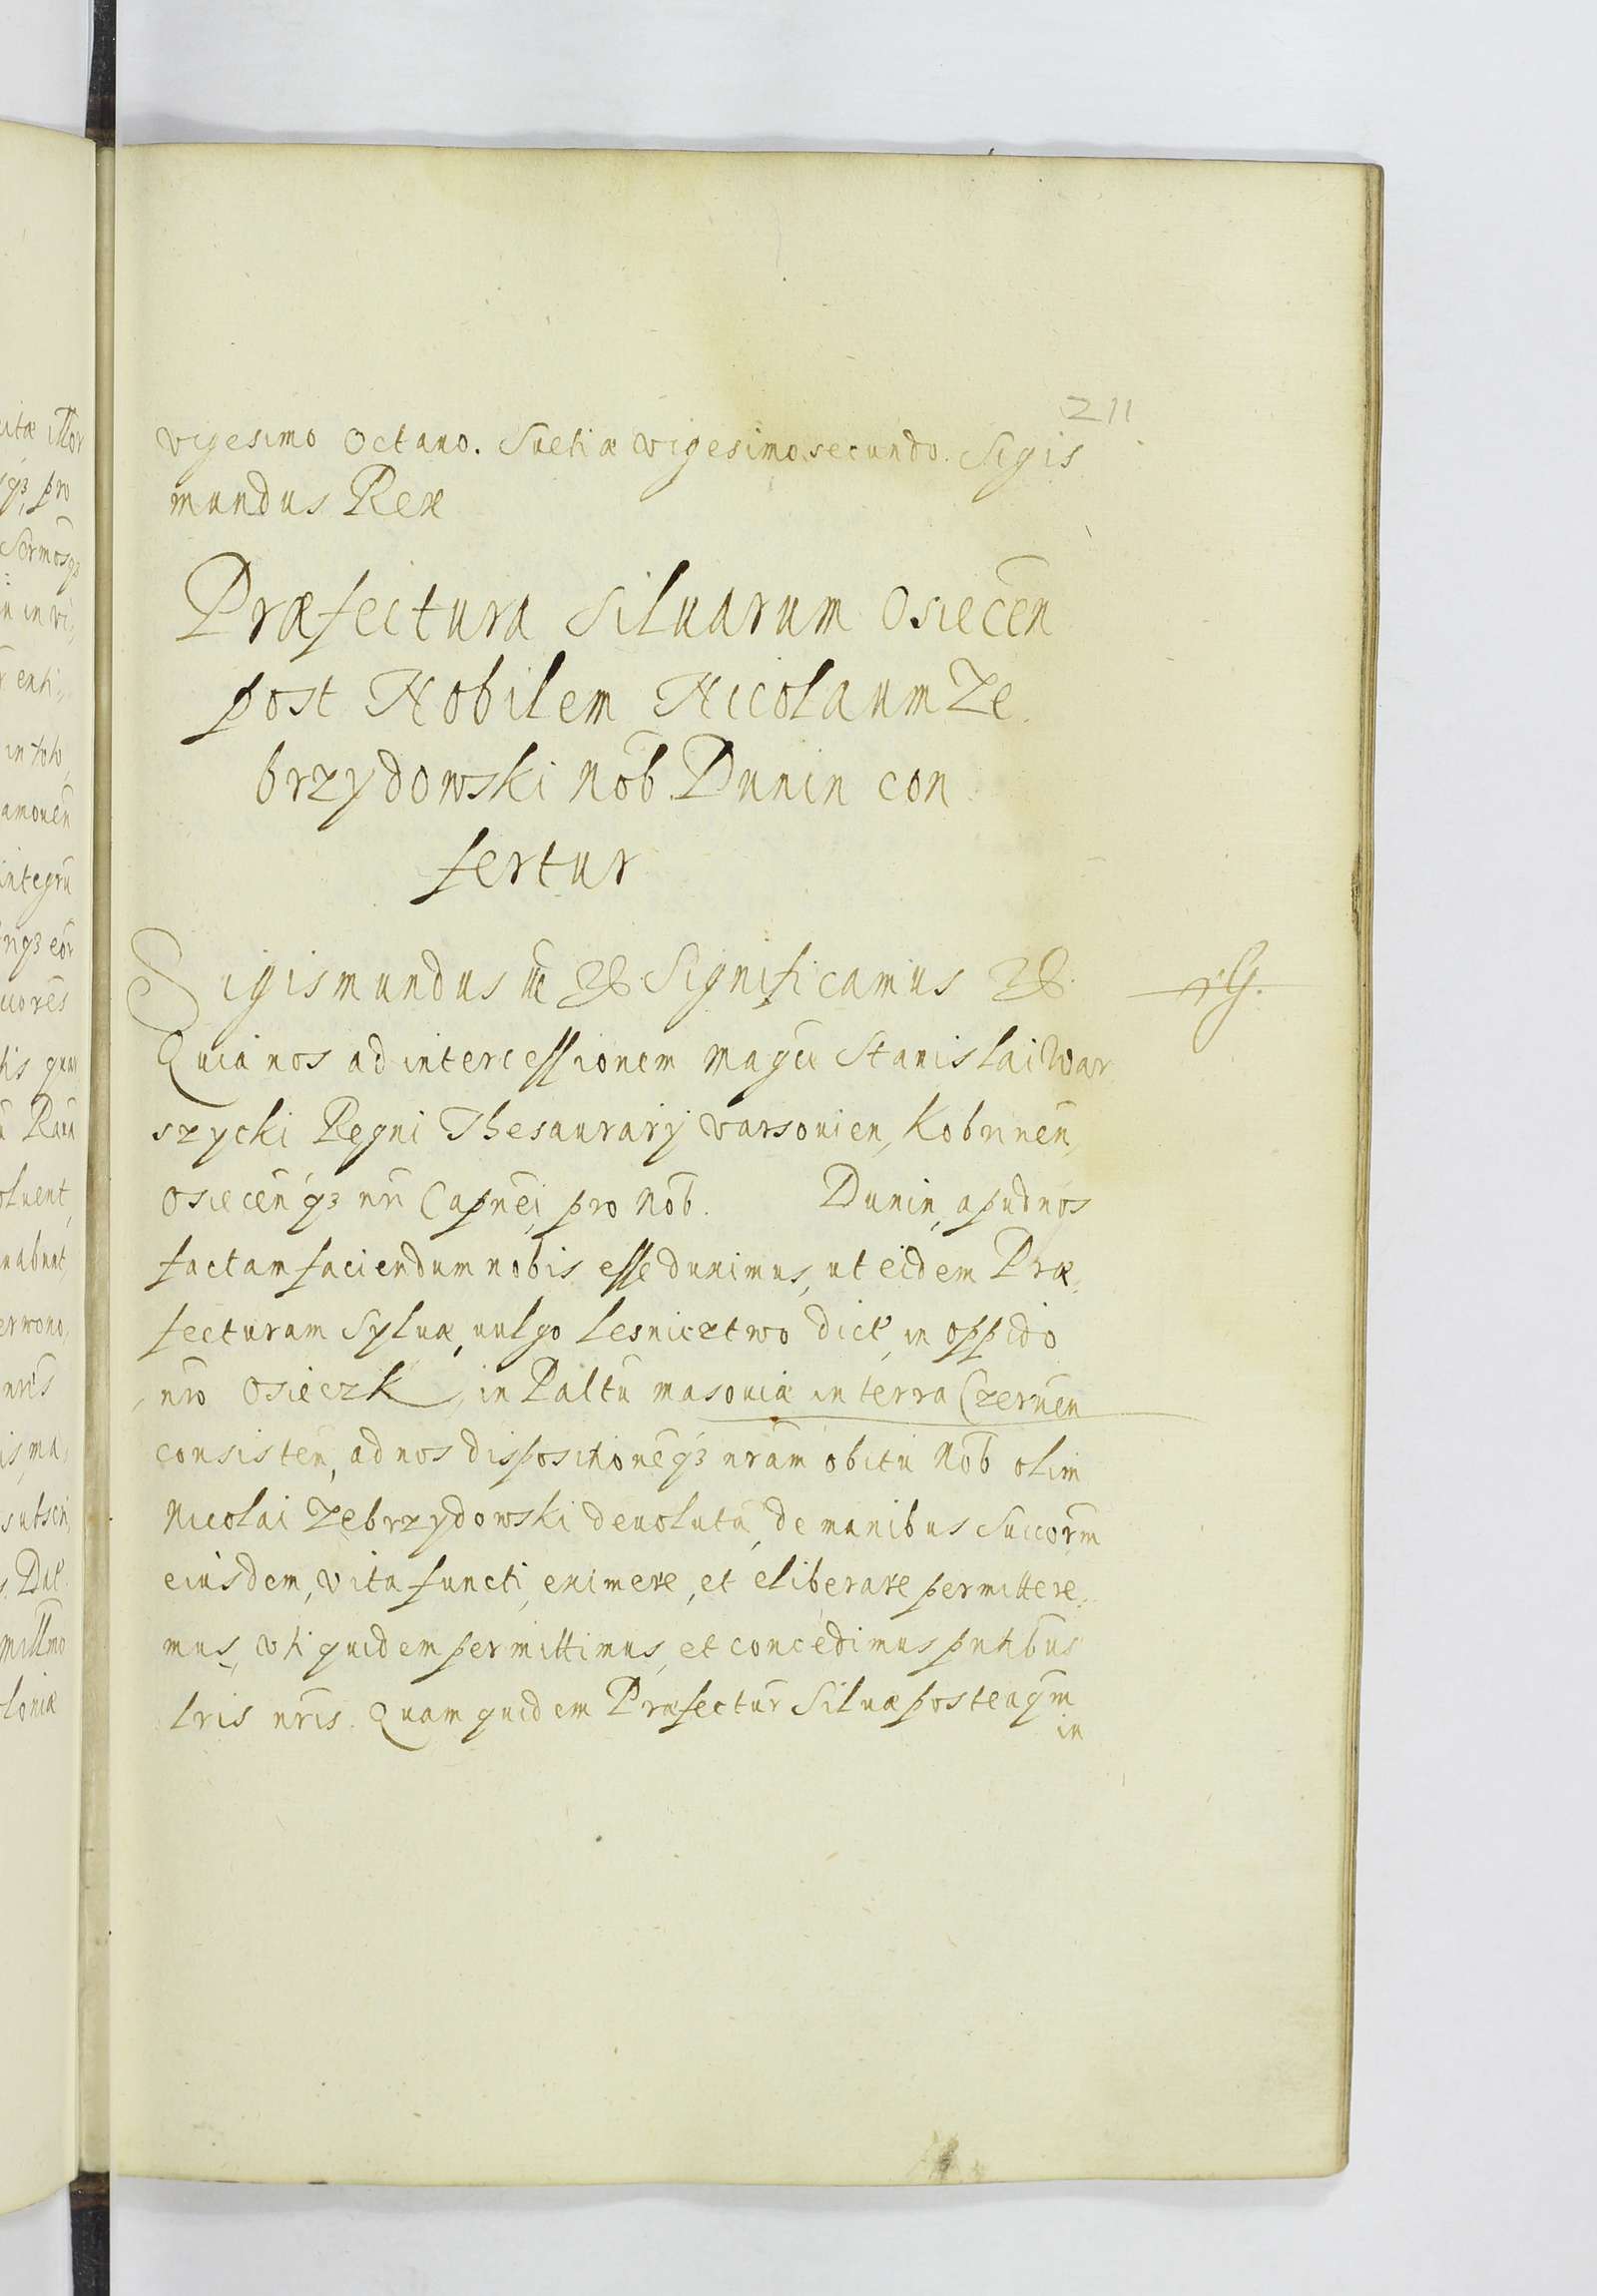 211
vigesimo Octauo. Suetiæ vigesimosecundo. Sigis
mundus Rex
Præfectura Siluarum Osiecen̄
post Nobilem Nicolaum Ze
brzydowski Nob̄. Dunin con
fertur
Sigismundus III Significamus
Quia nos ad intercessionem Magci Stanislai War
szycki Regni Thesaurarij Varsouien, Kobrinen̄,
Osiecen̄ qȝ nri Capnei, pro Nob̄. Dunin, apud nos
factam faciendum nobis esse duximus, ut eidem Præ
fecturam Syluæ, uulgo Lesnicztwo dict, in oppido
nro Osieczk, in Paltū Masouiæ in terra Czernen̄
consisten̄, ad nos dispositionēqȝ nram obitu Nob̄ olim
Nicolai Zebrzydowski deuolutā, de manibus Succorm
eiusdem, vita functi, eximere, et eliberare permittere
mus, vti quidem permittimus, et concedimus pntibus
lris nris. Quam quidem Præfectur̄ Siluæ posteaqm
in